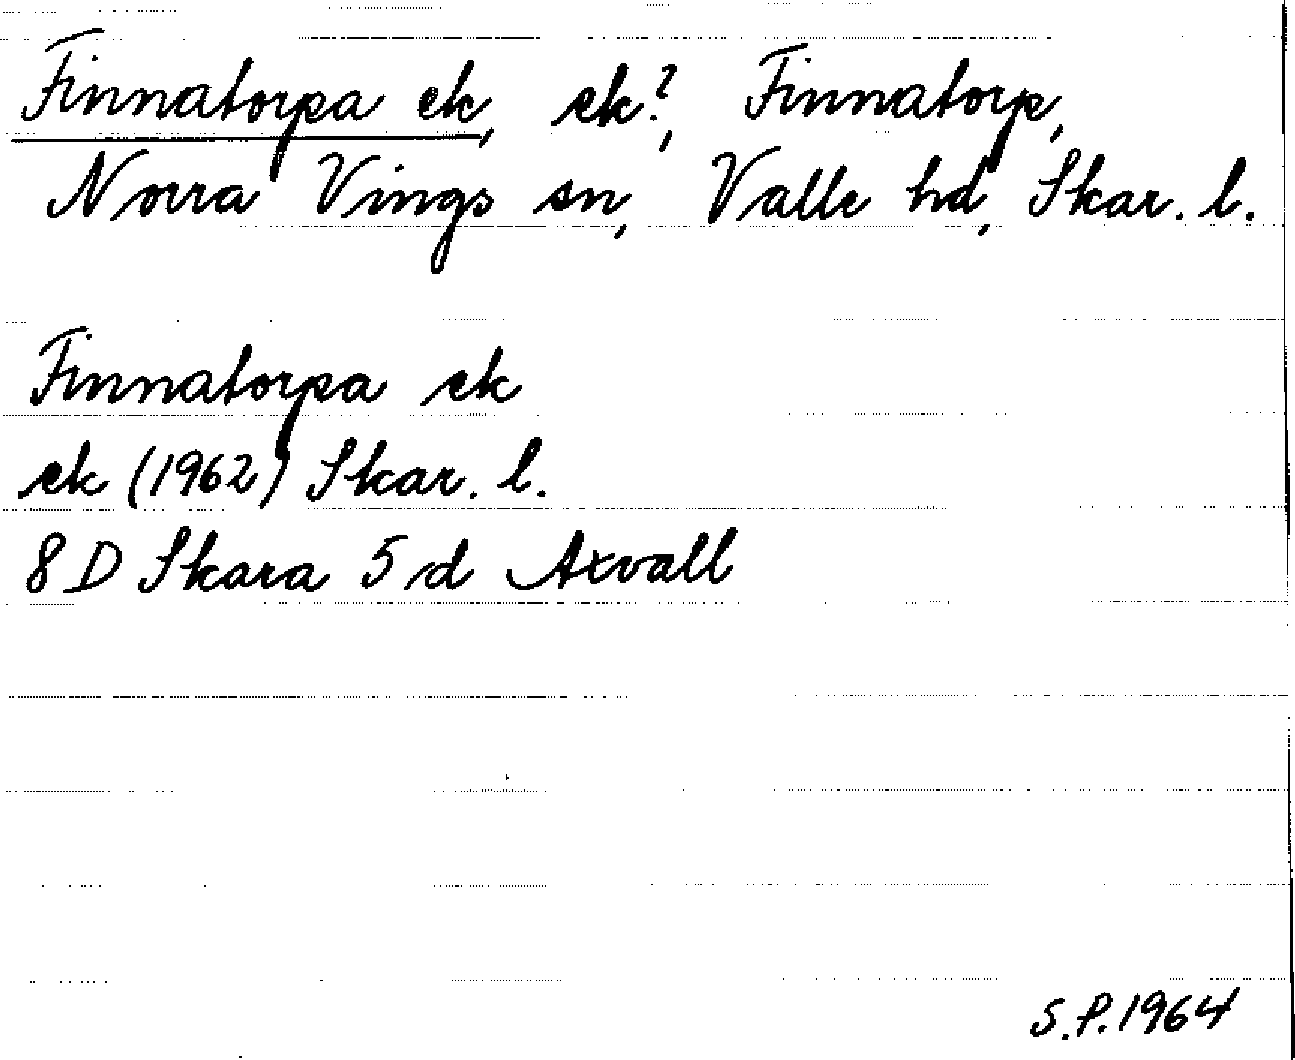 Finnatorpa ek, ek?, Finnatorp,
Norra Vings sn, Valle hd, Skar. l.
Finnatorpa ek
ek (1962) Skar. l.
8 D Skara 5 d Axvall
S.P. 1964